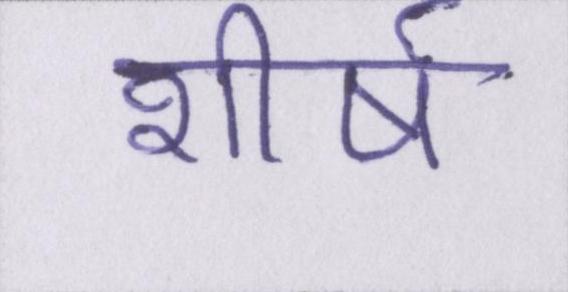 शीर्ष